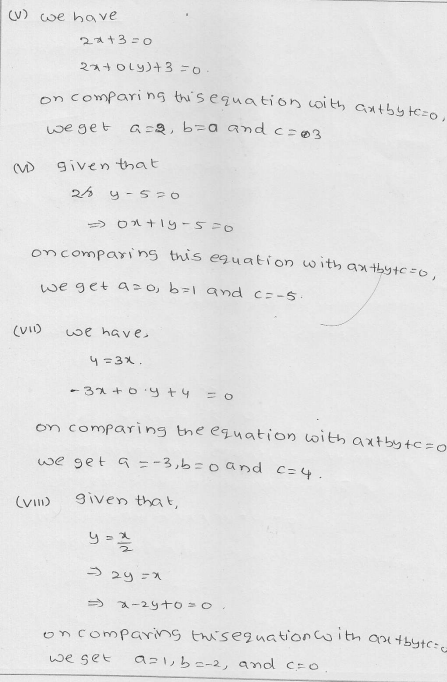 (V) we have
2x+3=0
2x+0(y)+3=0.
on comparing this equation with ax+by+c=0,
we get a=2, b=0 and c=3
(VI) given that
y-5=0
⇒ 0x+1y-5=0
on comparing this equation with ax+by+c=0,
we get a=0, b=1 and c=-5.
(VII) we have,
4=3x.
-3x+0·y+4=0
on comparing the equation with ax+by+c=0
we get a=-3, b=0 and c=4.
(VIII) given that,
y=x/2
⇒ 2y=x
⇒ x-2y+0=0.
on comparing this equation with ax+by+c=0
we get a=1, b=-2, and c=0.